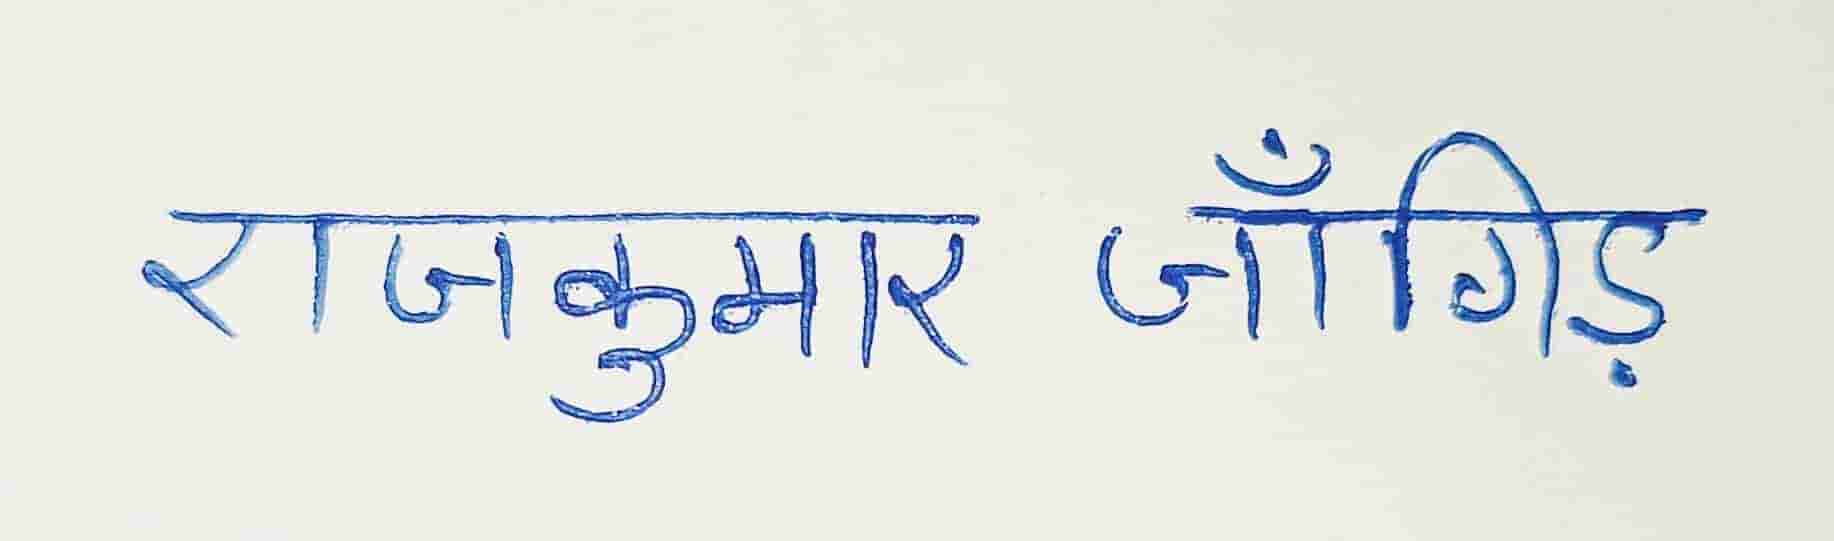 राजकुमार जाँगिड़